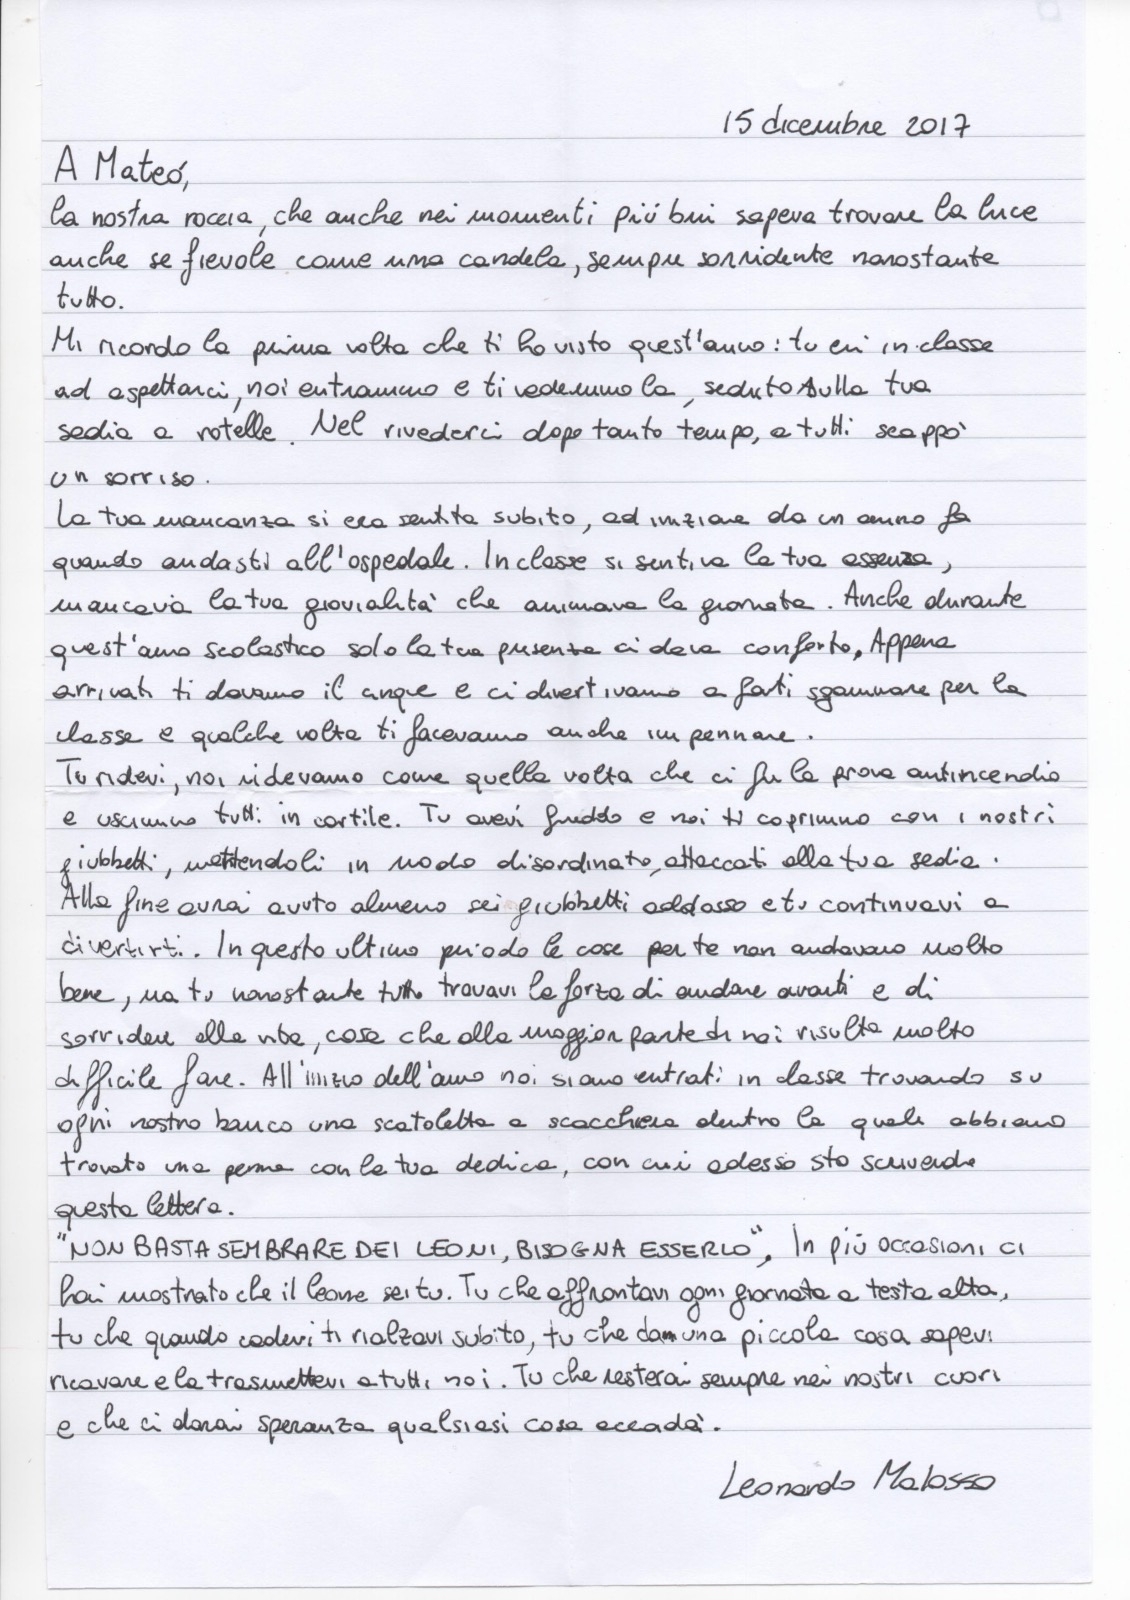 15 dicembre 2017
A Mateó,
la nostra roccia, che anche nei momenti più bui sapeva trovare la luce
anche se fievole come una candela, sempre sorridente nonostante
tutto.
Mi ricordo la prima volta che ti ho visto quest'anno: tu eri in classe
ad aspettarci, noi entrammo e ti vedemmo la, seduto sulla tua
sedia a rotelle. Nel rivederci dopo tanto tempo, a tutti scappò
un sorriso.
La tua mancanza si era sentita subito, ad iniziare da un anno fa
quando andasti all'ospedale. In classe si sentiva la tua assenza,
mancava la tua giovialità che animava la giornata. Anche durante
quest'anno scolastico solo la tua presenza ci dava conforto. Appena
arrivati ti davamo il cinque e ci divertivamo a farti sgommare per la
classe e qualche volta ti facevamo anche impennare.
Tu ridevi, noi ridevamo come quella volta che ci fu la prova antincendio
e uscimmo tutti in cortile. Tu avevi freddo e noi ti coprimmo con i nostri
giubbetti, mettendoli in modo disordinato, attaccati alla tua sedia.
Alla fine avrai avuto almeno sei giubbetti addosso e tu continuavi a
divertirti. In questo ultimo periodo le cose per te non andavano molto
bene, ma tu nonostante tutto trovavi la forza di andare avanti e di
sorridere alla vita, cosa che alla maggior parte di noi risulta molto
difficile fare. All'inizio dell'anno noi siamo entrati in classe trovando su
ogni nostro banco una scatoletta a scacchiera dentro la quale abbiamo
trovato una penna con la tua dedica, con cui adesso sto scrivendo
questa lettera.
"NON BASTA SEMBRARE DEI LEONI, BISOGNA ESSERLO". In più occasioni ci
hai mostrato che il leone sei tu. Tu che affrontavi ogni giornata a testa alta,
tu che quando cadevi ti rialzavi subito, tu che da una piccola cosa sapevi
ricavare e la trasmettevi a tutti noi. Tu che resterai sempre nei nostri cuori
e che ci darai speranza qualsiasi cosa accadà.
Leonardo Malosso